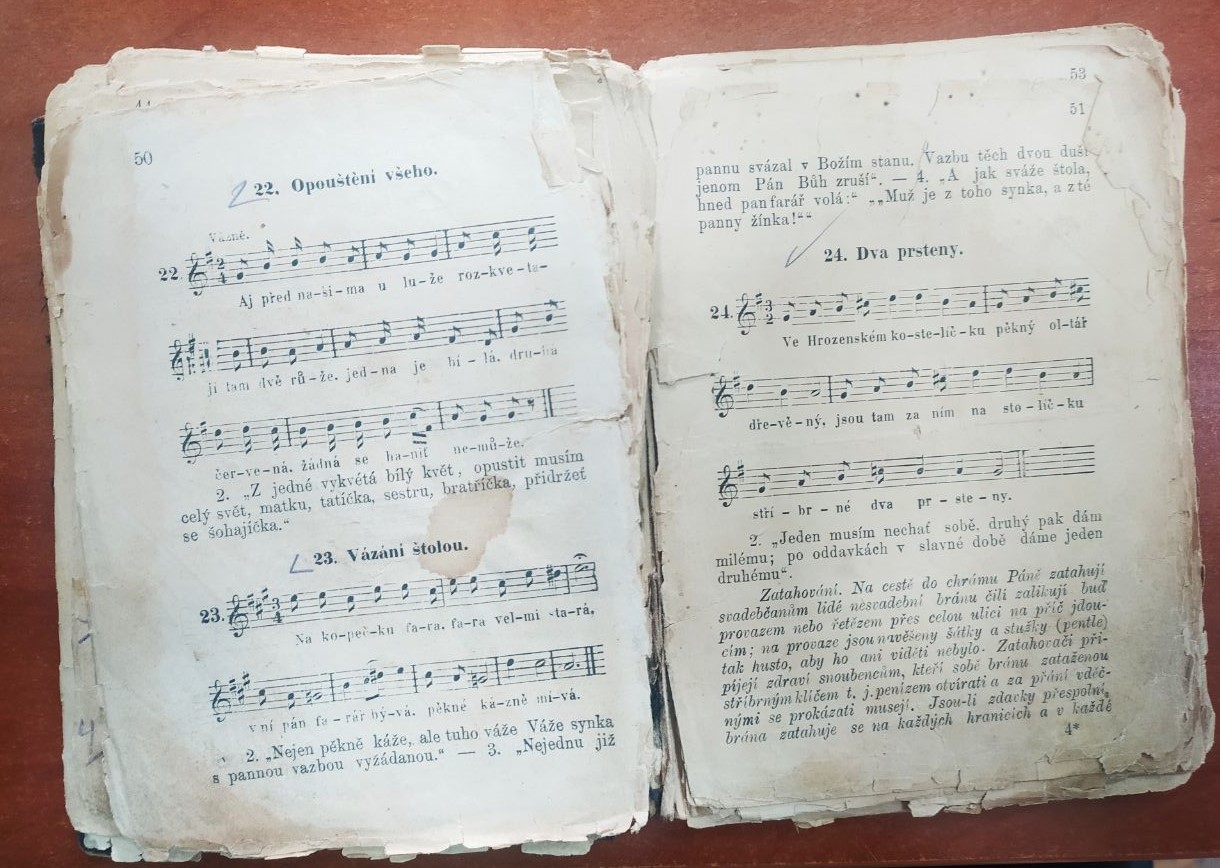 50
22. Opouštění všeho.
Vážně.
22.
2
4
Aj před na-ši-ma u lu-že roz-kve-ta-
jí tam dvě rů-že. jed-na je bí-lá. dru-há
čer-ve-ná. žádná se ha-niť ne-mů-že.
2. „Z jedné vykvétá bílý květ, opustit musím
celý svět, matku, tatíčka, sestru, bratříčka, přidržeť
se šohajíčka.“
23. Vázání štolou.
23.
3
4
Na ko-peč-ku fa-ra. fa-ra vel-mi sta-rá,
v ní pán fa-rář bý-vá. pěkné ká-zně mí-vá.
2. „Nejen pěkně káže, ale tuho váže Váže synka
s pannou vazbou vyžádanou.“ — 3. „Nejednu již
53
51
pannu svázal v Božím stanu. Vazbu těch dvou duší
jenom Pán Bůh zruší“. — 4. „A jak sváže štola,
hned pan farář volá:“ „„Muž je z toho synka, a z té
panny žínka!““
24. Dva prsteny.
24.
3
2
Ve Hrozenském ko-ste-líč-ku pěkný ol-tář
dře-vě-ný, jsou tam za ním na sto-líč-ku
stří-br-né dva pr-ste-ny.
2. „Jeden musím nechať sobě, druhý pak dám
milému; po oddavkách v slavné době dáme jeden
druhému“.
Zatahování. Na cestě do chrámu Páně zatahují
svadebčanům lidé nesvadební bránu čili zalikují buď
provazem nebo řetězem přes celou ulici na příč jdou-
cím; na provaze jsou navěšeny šátky a stužky (pentle)
tak husto, aby ho ani viděti nebylo. Zatahovači při-
píjejí zdraví snoubencům, kteří sobě bránu zataženou
stříbrným klíčem t. j. penízem otvírati a za přání vděč-
nými se prokázati musejí. Jsou-li zdacky přespolní,
brána zatahuje se na každých hranicích a v každé
4*